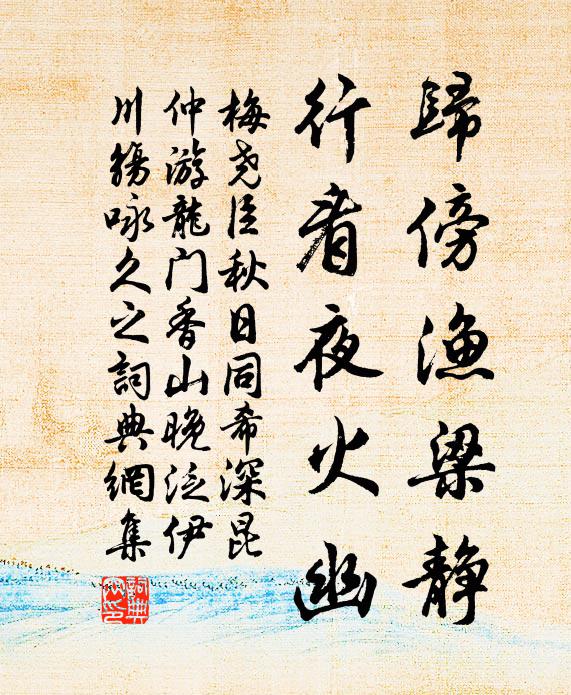 歸傍漁梁静
行看夜火幽
梅尧臣秋日同希深昆
仲游龍门香山晚泛伊
川觴咏久之詞典網集